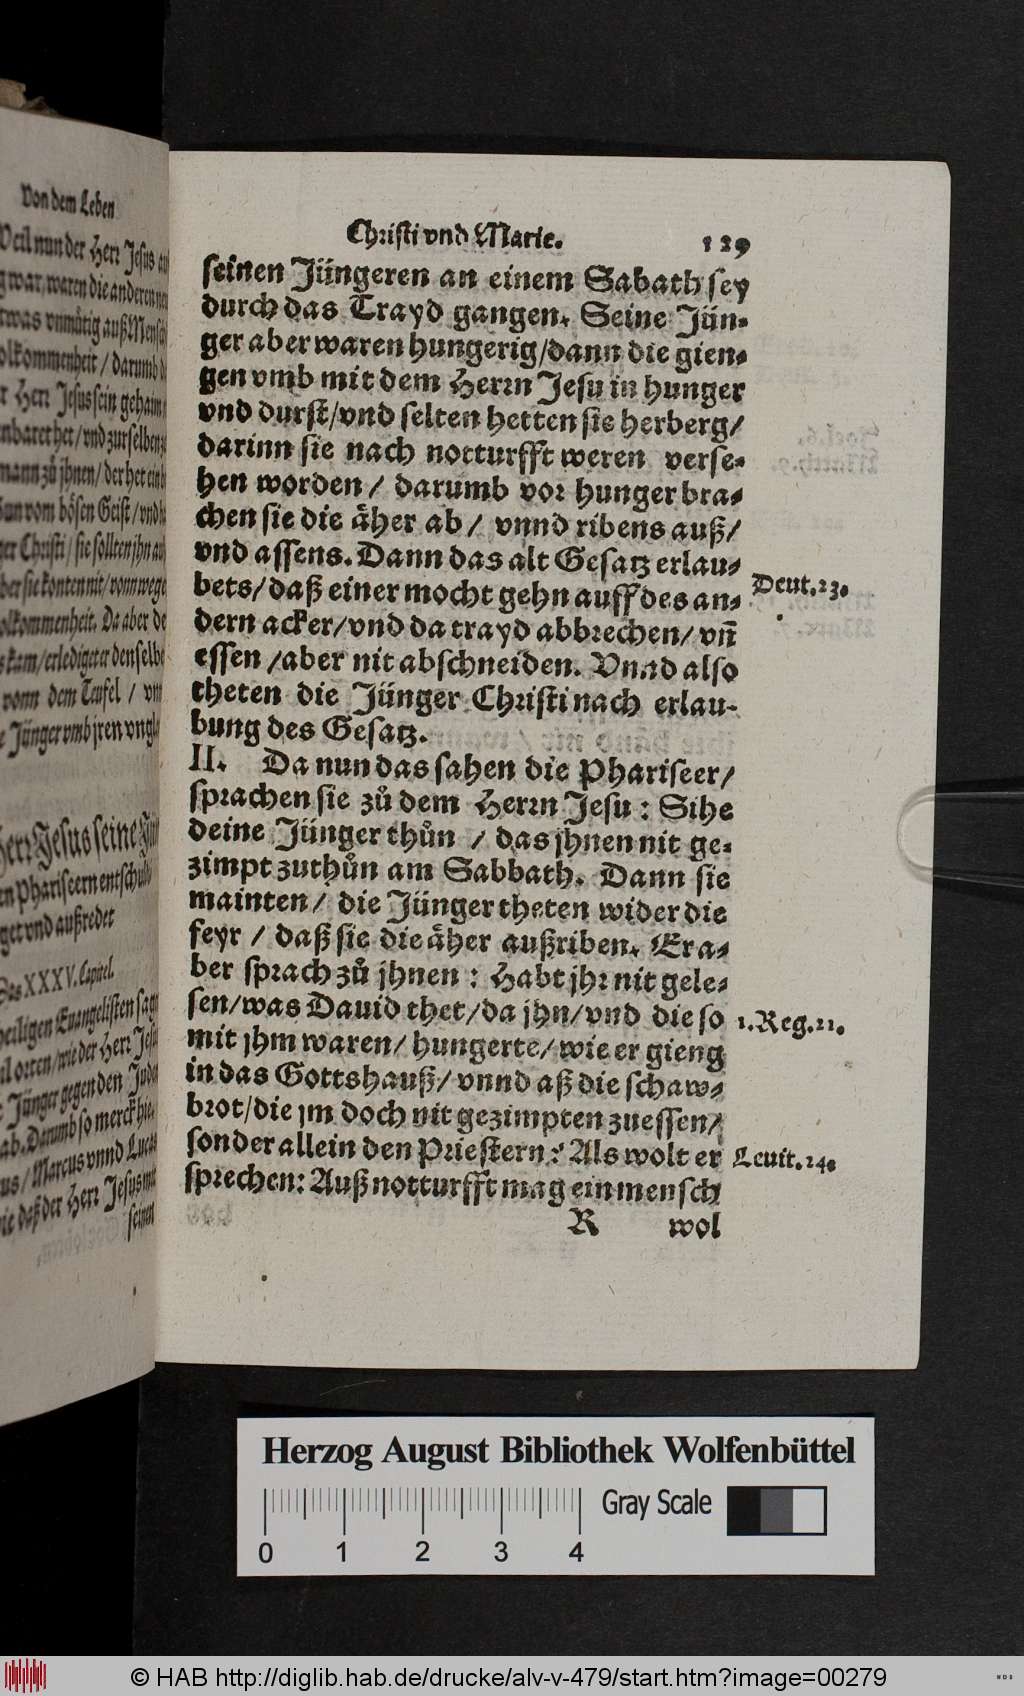 Von dem Leben
Weil nun der Herr Jesus
war, waren die anderen
etwas vnmütig auß
/ darumb
Herr Jesus sein
/ vnd zur selben
zů jhnen / der het ein
vom bösen Geist / vnd
Christi / sie sollten jhn
sie konten nit / vonn wege
Da aber
kam / erlediget er den selbe
vonn dem Teufel /
Jünger vmb jren
Herr Jesus seine
Phariseern
get vnd außredet
Das XXXV. Capitel.
heiligen Euangelisten
orten / wie der Herr
Jünger gegen den
Darumb so merck hie.
/ Marcus vnnd
wie daß der Herr Jesus mit
seinen
Christi vnd Marie. 129
seinen Jüngeren an einem Sabath sey
durch das Trayd gangen. Seine Jün-
ger aber waren hungerig/dann die gien-
gen vmb mit dem Herrn Jesu in hunger
vnd durst/vnd selten hetten sie herberg/
darinn sie nach notturfft weren verse-
hen worden / darumb vor hunger bra-
chen sie die äher ab / vnnd ribens auß/
vnd assens. Dann das alt Gesatz erlau-
bets/daß einer mocht gehn auff des an-
dern acker/vnd da trayd abbrechen/ vñ
essen /aber nit abschneiden. Vnnd also
theten die Jünger Christi nach erlau-
bung des Gesatz.
Deut. 23.
II. Da nun das sahen die Phariseer/
sprachen sie zů dem Herrn Jesu : Sihe
deine Jünger thůn / das jhnen nit ge-
zimpt zuthůn am Sabbath. Dann sie
mainten / die Jünger theten wider die
feyr / daß sie die äher außriben. Er a-
ber sprach zů jhnen : Habt jhr nit gele-
sen/was Dauid thet/da jhn/vnd die so
mit jhm waren/ hungerte/wie er gieng
in das Gottshauß/ vnnd aß die schaw-
brot/die jm doch nit gezimpten zuessen/
sonder allein den Priestern: Als wolt er
sprechen: Auß notturfft mag ein mensch
1. Reg. 21.
Leuit. 24.
R wol
Herzog August Bibliothek Wolfenbüttel
Gray Scale
0 1 2 3 4
© HAB http://diglib.hab.de/drucke/alv-v-479/start.htm?image=00279